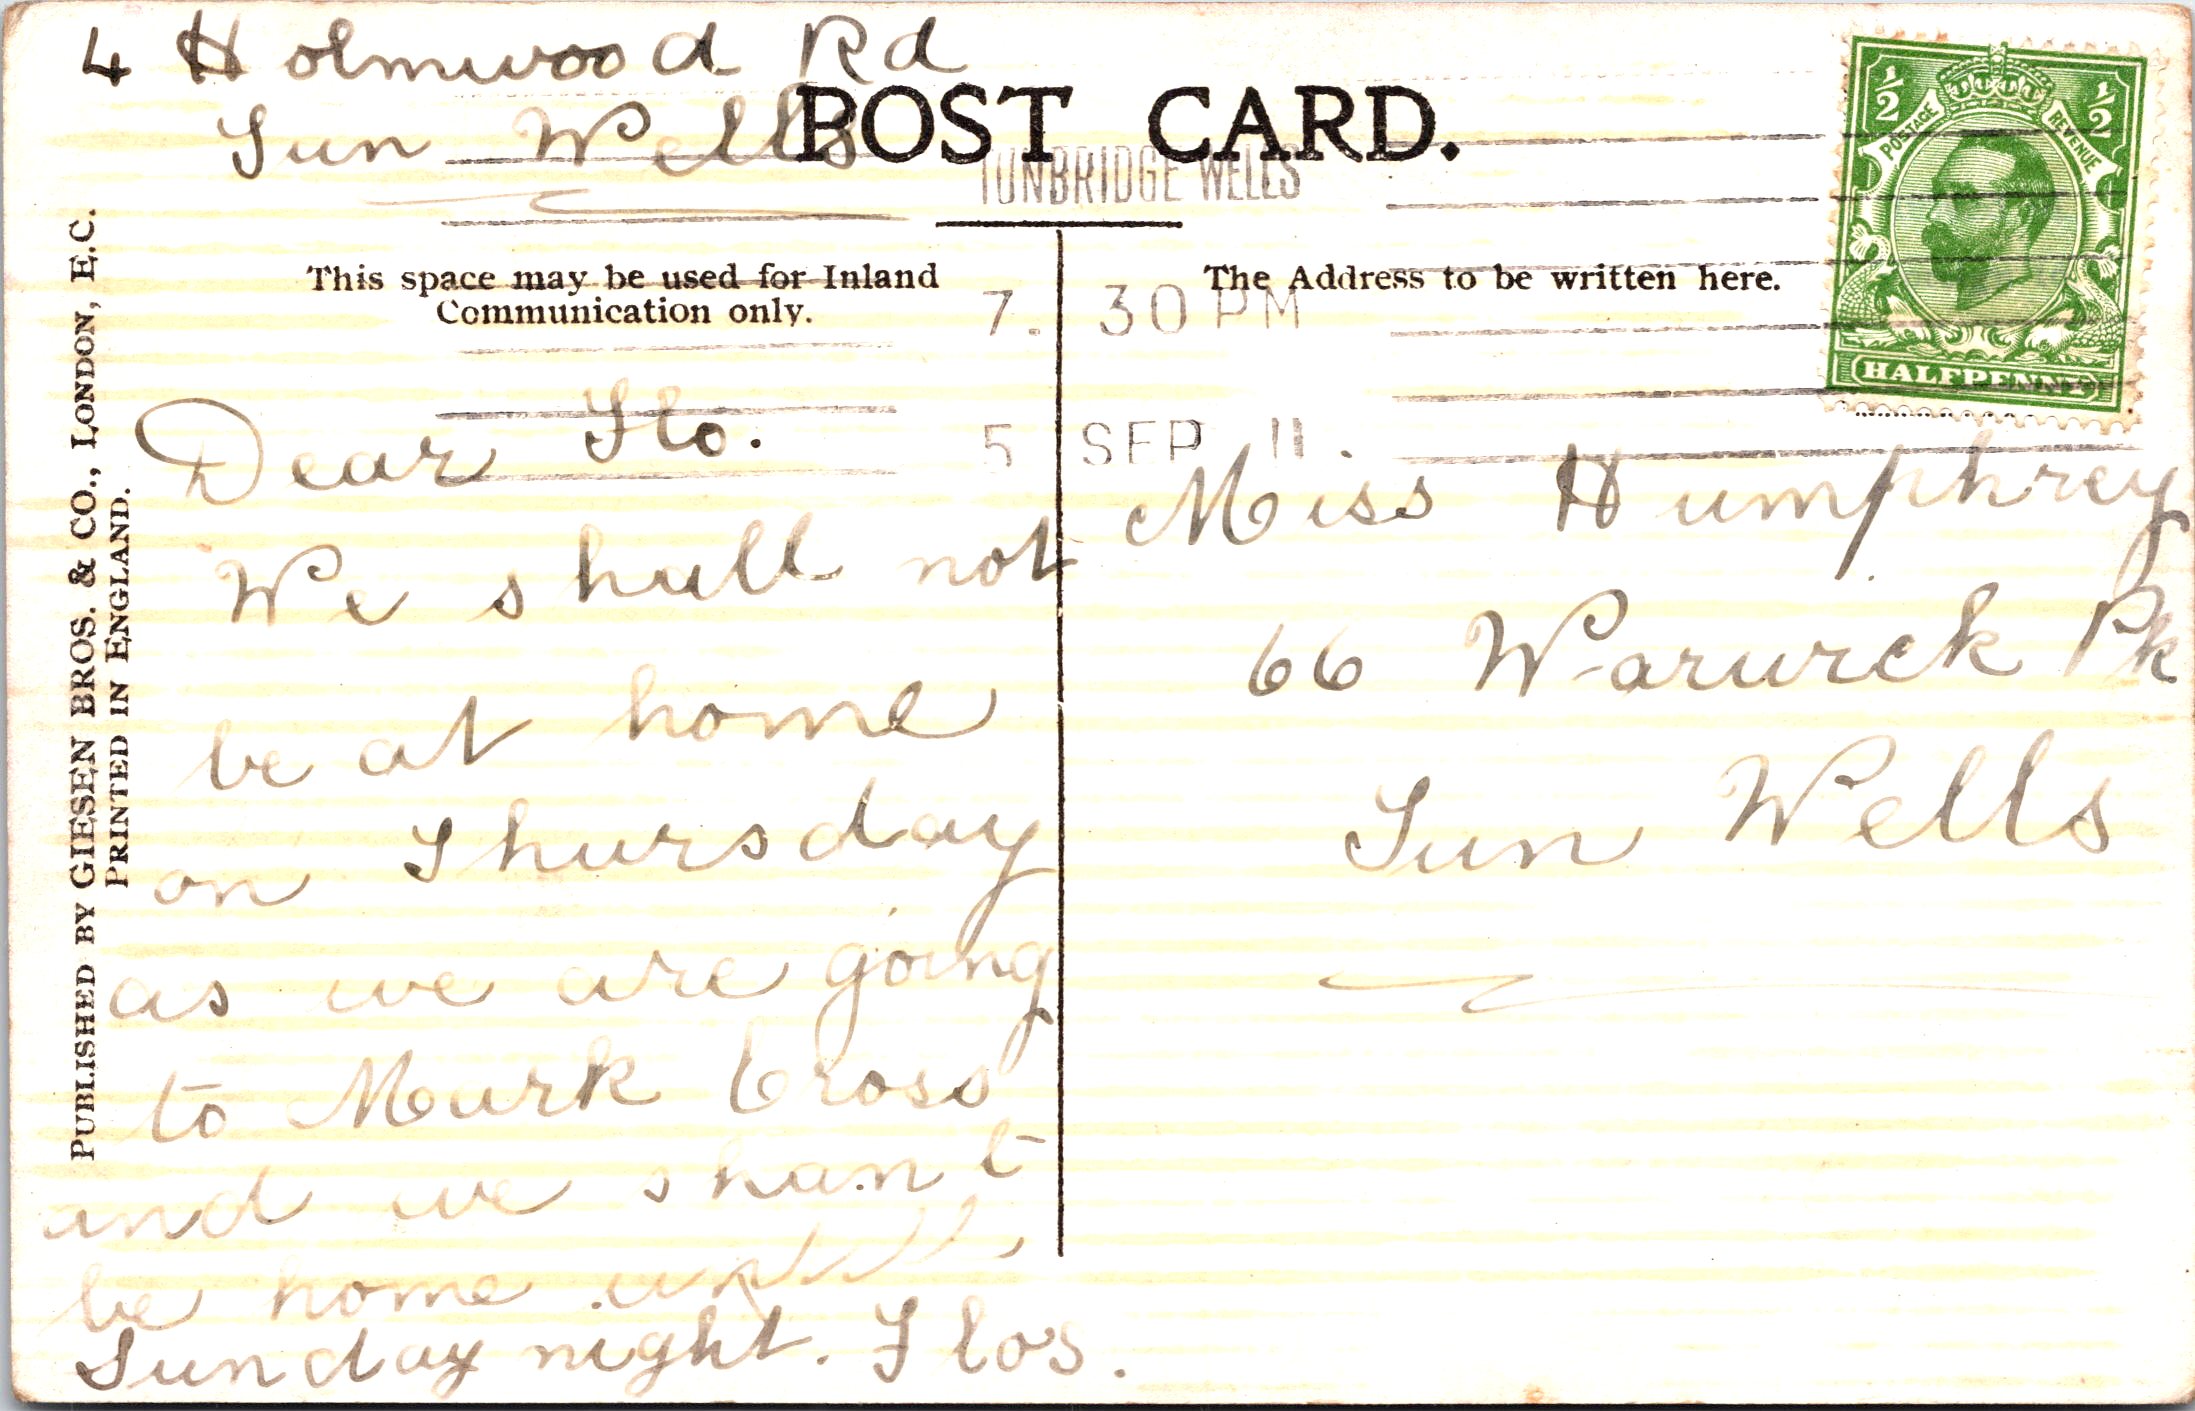 4 Holmwood Rd
Tun Wells
POST CARD.
TUNBRIDGE WELLS
7. 30 PM
5 SEP 11.
½ ½
POSTAGE REVENUE
HALFPENNY
This space may be used for Inland
Communication only.
The Address to be written here.
PUBLISHED BY GIESEN BROS. & CO., LONDON, E.C.
PRINTED IN ENGLAND.
Dear Flo.
We shall not
be at home
on Thursday
as we are going
to Mark Cross
and we shan t
be home untill
Sunday night. Flos.
Miss Humphrey
66 Warwick Pk
Tun Wells